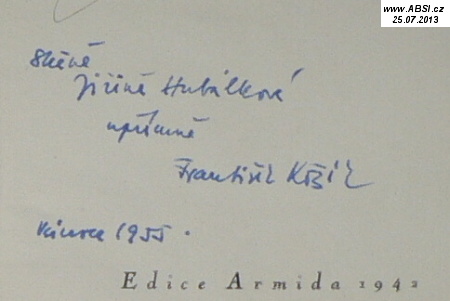 www.ABSI.cz
25.07.2013
Jiřině Hubálkové
upřímně
František Kožík
Vánoce 1955.
Edice Armida 1942